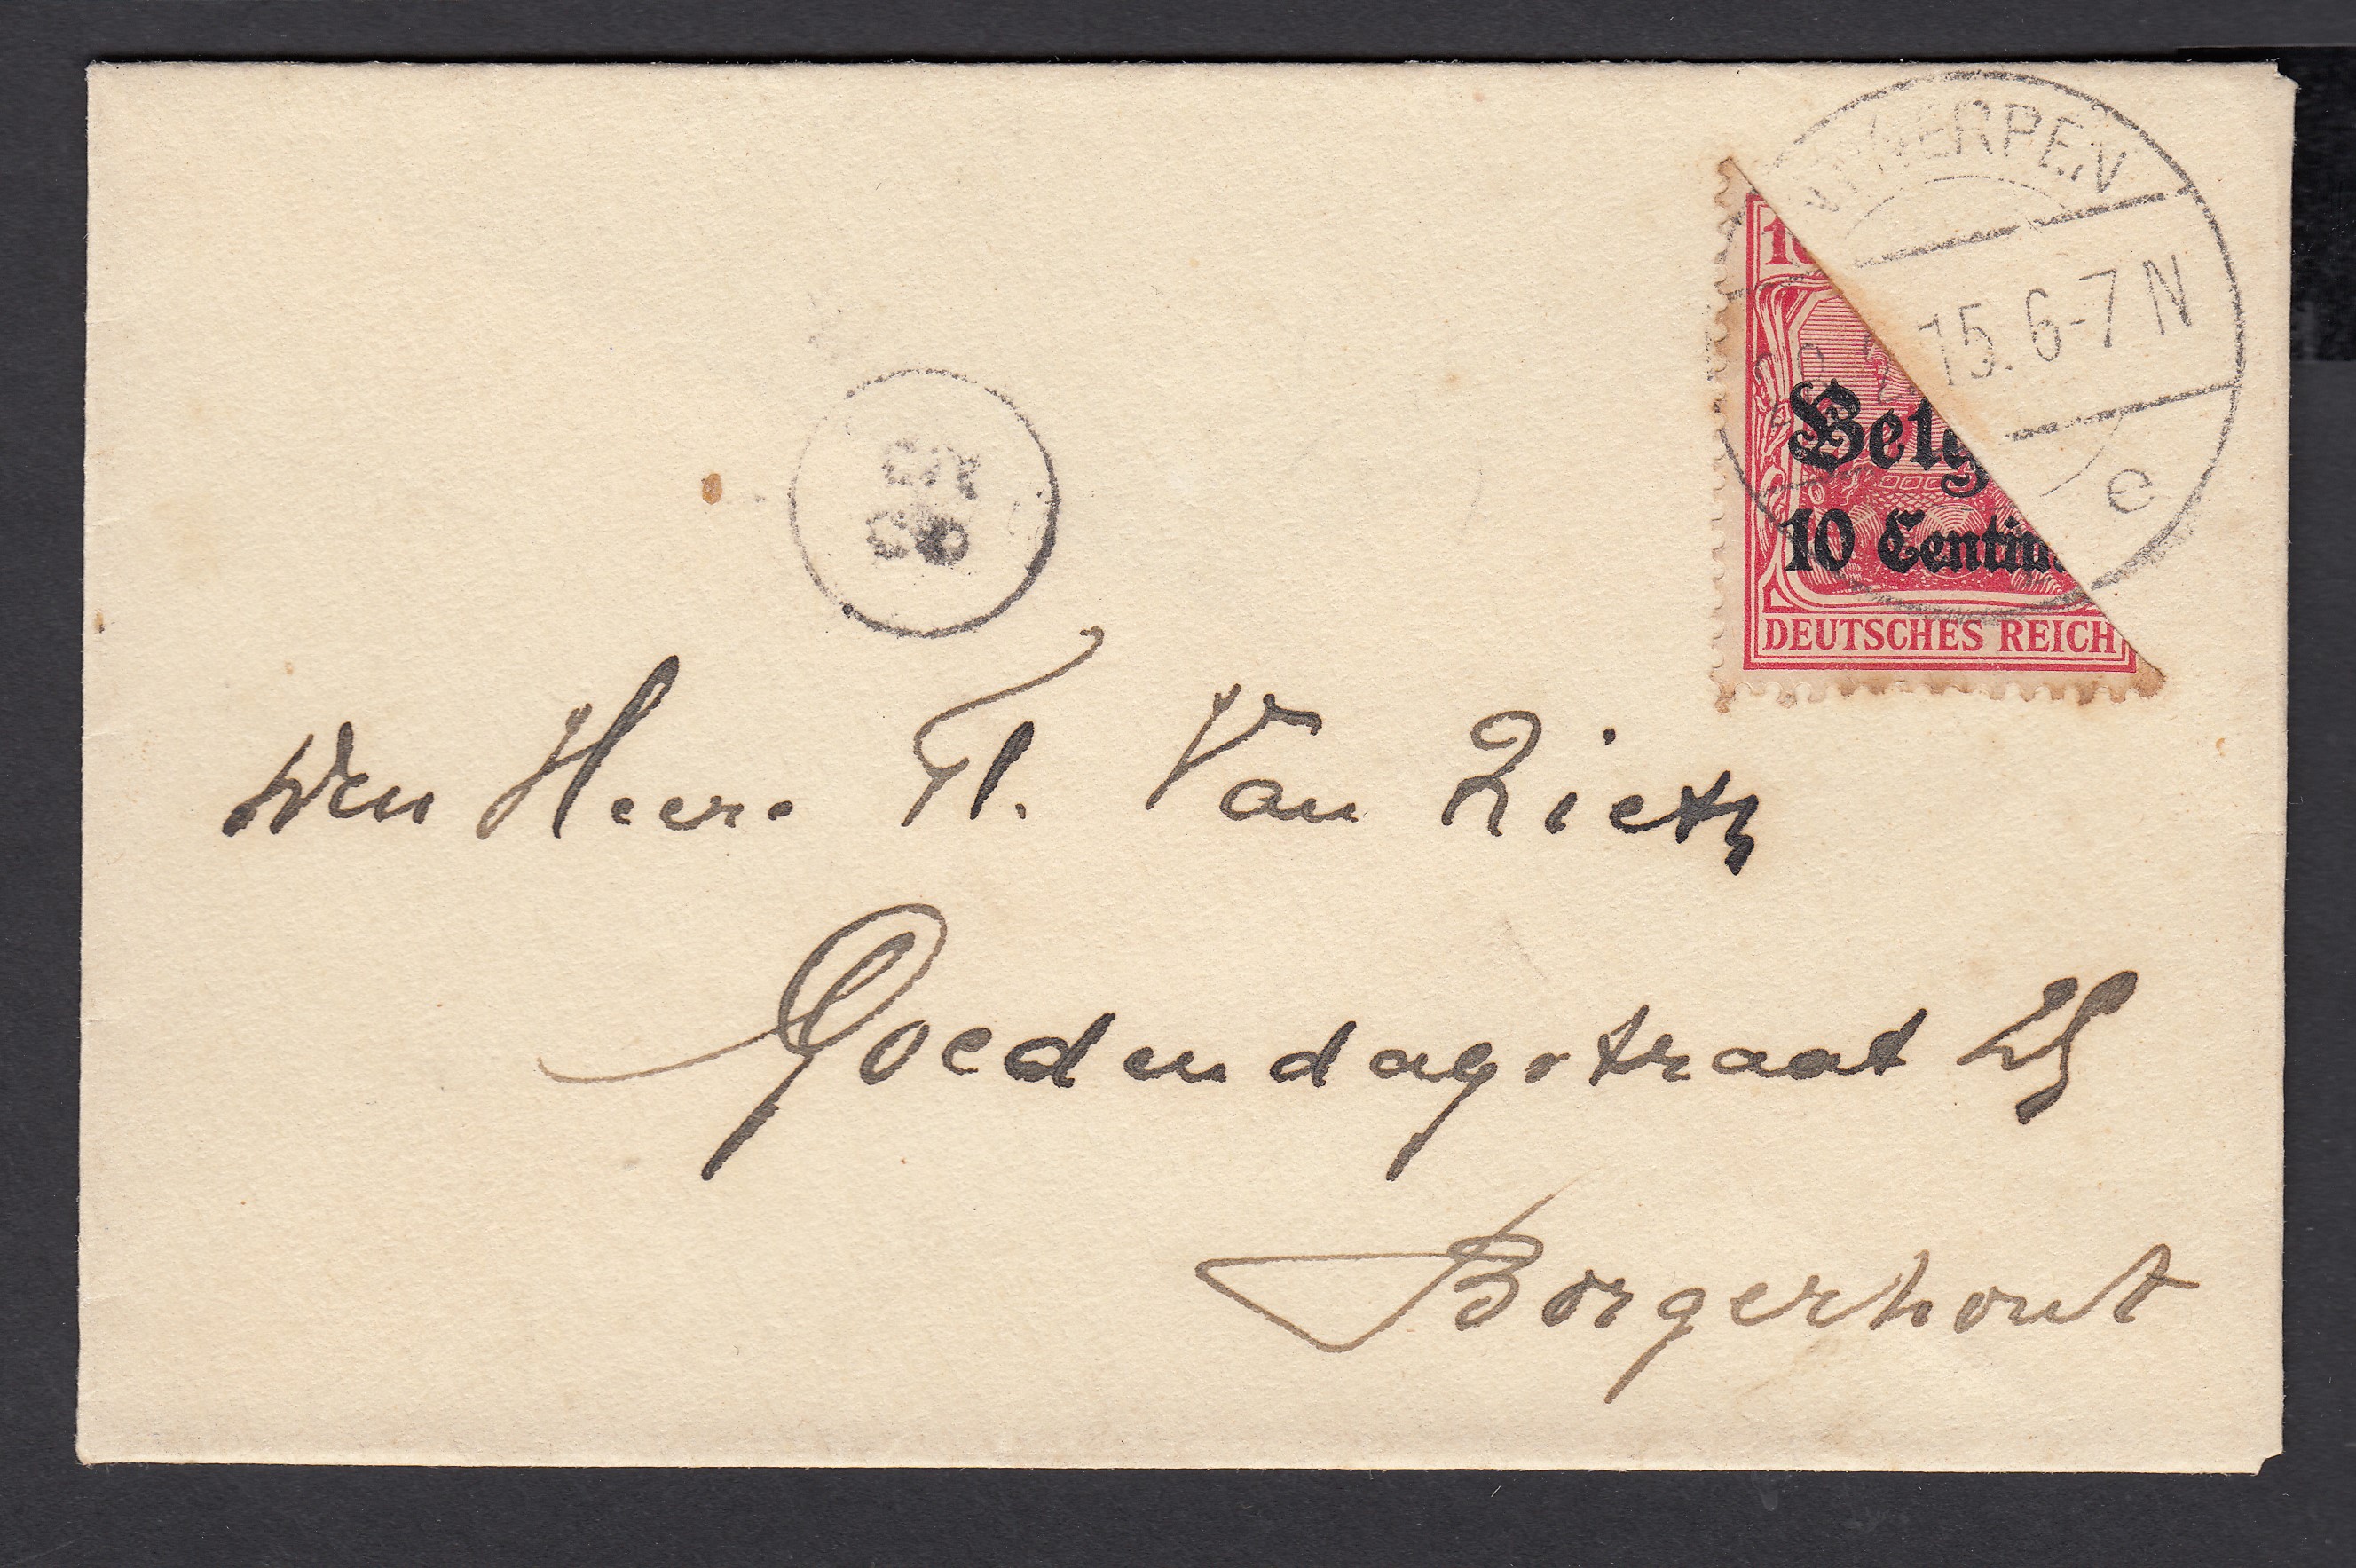 ANTWERPEN
15. 6-7 N
c
10
Belg
10 Centim
DEUTSCHES REICH
Den Heer. Fl. Van
Goedendagstraat 25
Borgerhout